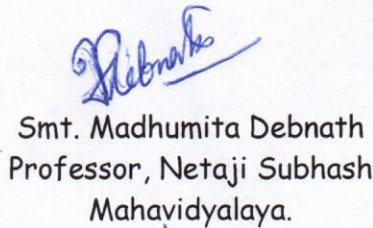 Debnath
Smt. Madhumita Debnath
Professor, Netaji Subhash
Mahavidyalaya.